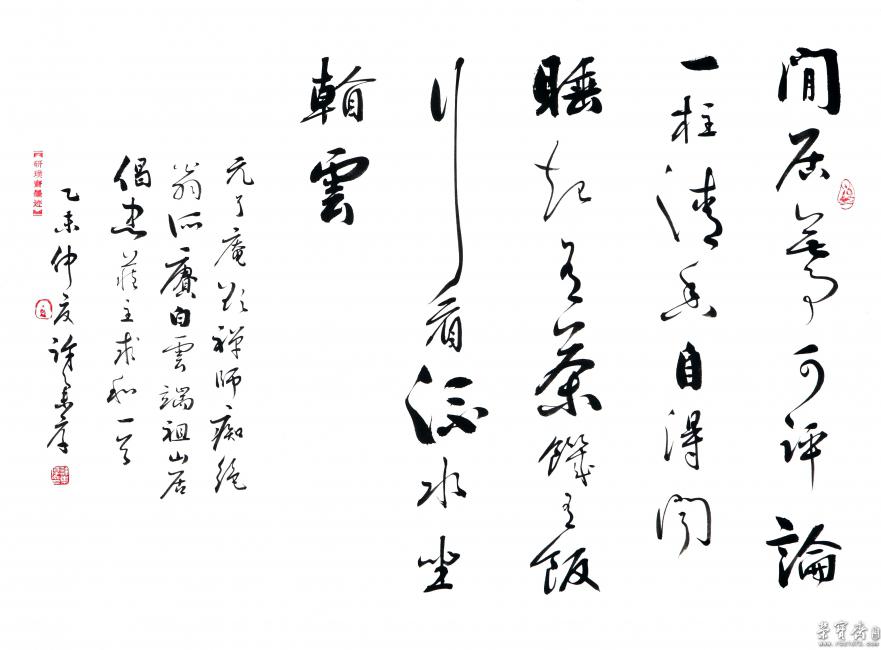 閒居無事可評論
一柱清香自得聞
睡起有茶饑有飯
行看流水坐
看雲
元了庵欲禅師痴絶
翁所賡白雲端祖山居
偈忠藏主求和一首
乙未仲夏許
榮寶齋